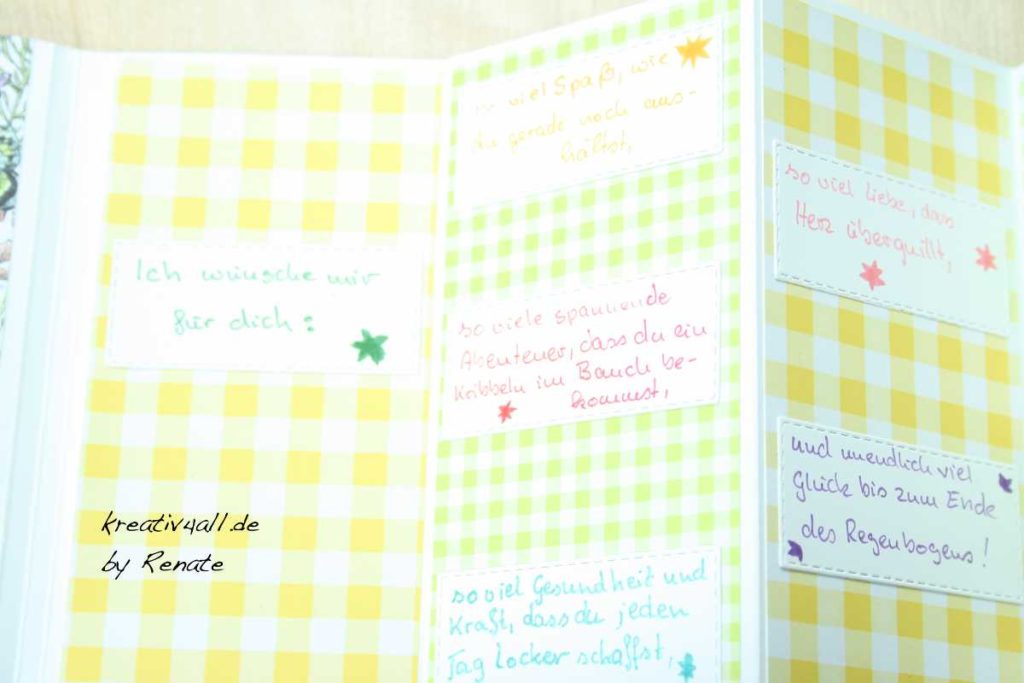 Ich wünsche mir
für dich:
so viel Spaß, wie
du gerade noch aus-
hältst,
so viele spannende
Abenteuer, dass du ein
Kribbeln im Bauch be-
kommst,
so viel Gesundheit und
Kraft, dass du jeden
Tag locker schaffst,
so viel Liebe, dass
Herz überquillt,
und unendlich viel
Glück bis zum Ende
des Regenbogens!
kreativ4all.de
by Renate